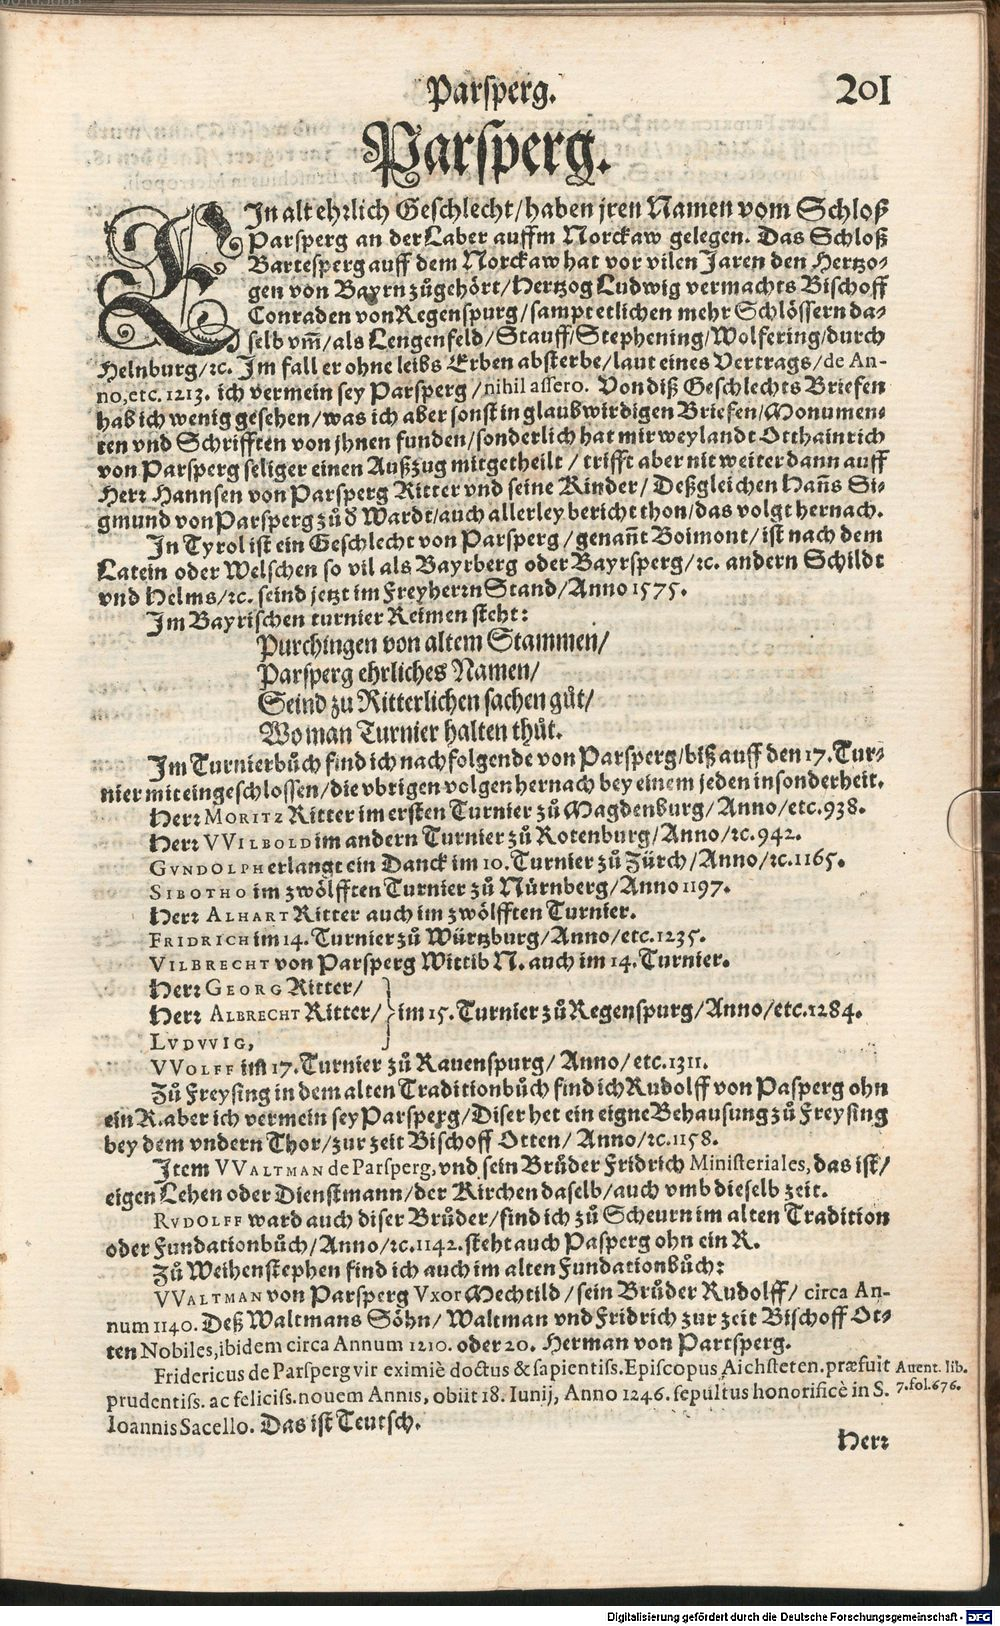 Parsperg. 201
Parsperg.
EIn alt ehrlich Geschlecht/haben jren Namen vom Schloß
Parsperg an der Laber auffm Norckaw gelegen. Das Schloß
Bartesperg auff dem Norckaw hat vor vilen Jaren den Hertzo-
gen von Bayrn zůgehört/Hertzog Ludwig vermachts Bischoff
Conraden von Regenspurg/sampt etlichen mehr Schlössern da-
selb vm̃/als Lengenfeld/Stauff/Stephening/Wolfering/durch
Helnburg/ꝛc. Im fall er ohne leibs Erben absterbe/laut eines Vertrags/de An-
no, etc. 1213. ich vermein sey Parsperg/nihil assero. Von diß Geschlechts Briefen
hab ich wenig gesehen/was ich aber sonst in glaubwirdigen Briefen/Monumen-
ten vnd Schrifften von jhnen funden/sonderlich hat mir weylandt Otthainrich
von Parsperg seliger einen Außzug mitgetheilt/trifft aber nit weiter dann auff
Herr Hannsen von Parsperg Ritter vnd seine Kinder/Deßgleichen Hañs Si-
gmund von Parsperg zů d̓ Wardt/auch allerley bericht thon/das volgt hernach.
In Tyrol ist ein Geschlecht von Parsperg/genañt Boimont/ist nach dem
Latein oder Welschen so vil als Bayrberg oder Bayrsperg/ꝛc. andern Schildt
vnd Helms/ꝛc. seind jetzt im Freyherrn Stand/Anno 1575.
Im Bayrischen turnier Reimen steht:
Purchingen von altem Stammen/
Parsperg ehrliches Namen/
Seind zu Ritterlichen sachen gůt/
Wo man Turnier halten thůt.
Im Turnierbůch find ich nachfolgende von Parsperg/biß auff den 17. Tur-
nier mit eingeschlossen/die vbrigen volgen hernach bey einem jeden insonderheit.
Herr MORITZ Ritter im ersten Turnier zů Magdenburg/Anno/etc. 938.
Herr VVILBOLD im andern Turnier zů Rotenburg/Anno/ꝛc. 942.
GVNDOLPH erlangt ein Danck im 10. Turnier zů Zürch/Anno/ꝛc. 1165.
SIBOTHO im zwölfften Turnier zů Nürnberg/Anno 1197.
Herr ALHART Ritter auch im zwölfften Turnier.
FRIDRICH im 14. Turnier zů Würtzburg/Anno/etc. 1235.
VILBRECHT von Parsperg Wittib N. auch im 14. Turnier.
Herr GEORG Ritter/
Herr ALBRECHT Ritter/ } im 15. Turnier zů Regenspurg/Anno/etc. 1284.
LVDVVIG,
VVOLFF im 17. Turnier zů Rauenspurg/Anno/etc. 1311.
Zů Freysing in dem alten Traditionbůch find ich Rudolff von Pasperg ohn
ein R. aber ich vermein sey Parsperg/Diser het ein eigne Behausung zů Freysing
bey dem vndern Thor/zur zeit Bischoff Otten/Anno/ꝛc. 1158.
Item VVALTMAN de Parsperg, vnd sein Brůder Fridrich Ministeriales, das ist/
eigen Lehen oder Dienstmann/der Kirchen daselb/auch vmb dieselb zeit.
RVDOLFF ward auch diser Brůder/find ich zů Scheurn im alten Tradition
oder Fundationbůch/Anno/ꝛc. 1142. steht auch Pasperg ohn ein R.
Zů Weihenstephen find ich auch im alten Fundationbůch:
VVALTMAN von Parsperg Vxor Mechtild/sein Brůder Rudolff/circa An-
num 1140. Deß Waltmans Söhn/Waltman vnd Fridrich zur zeit Bischoff Ot-
ten Nobiles, ibidem circa Annum 1210. oder 20. Herman von Partsperg.
Fridericus de Parsperg vir eximiè doctus & sapientiss. Episcopus Aichsteten. præfuit
Auent. lib.
prudentiss. ac feliciss. nouem Annis, obiit 18. Iunij, Anno 1246. sepultus honorificè in S.
7. fol. 676.
Ioannis Sacello. Das ist Teutsch.
Herr
Digitalisierung gefördert durch die Deutsche Forschungsgemeinschaft - DFG